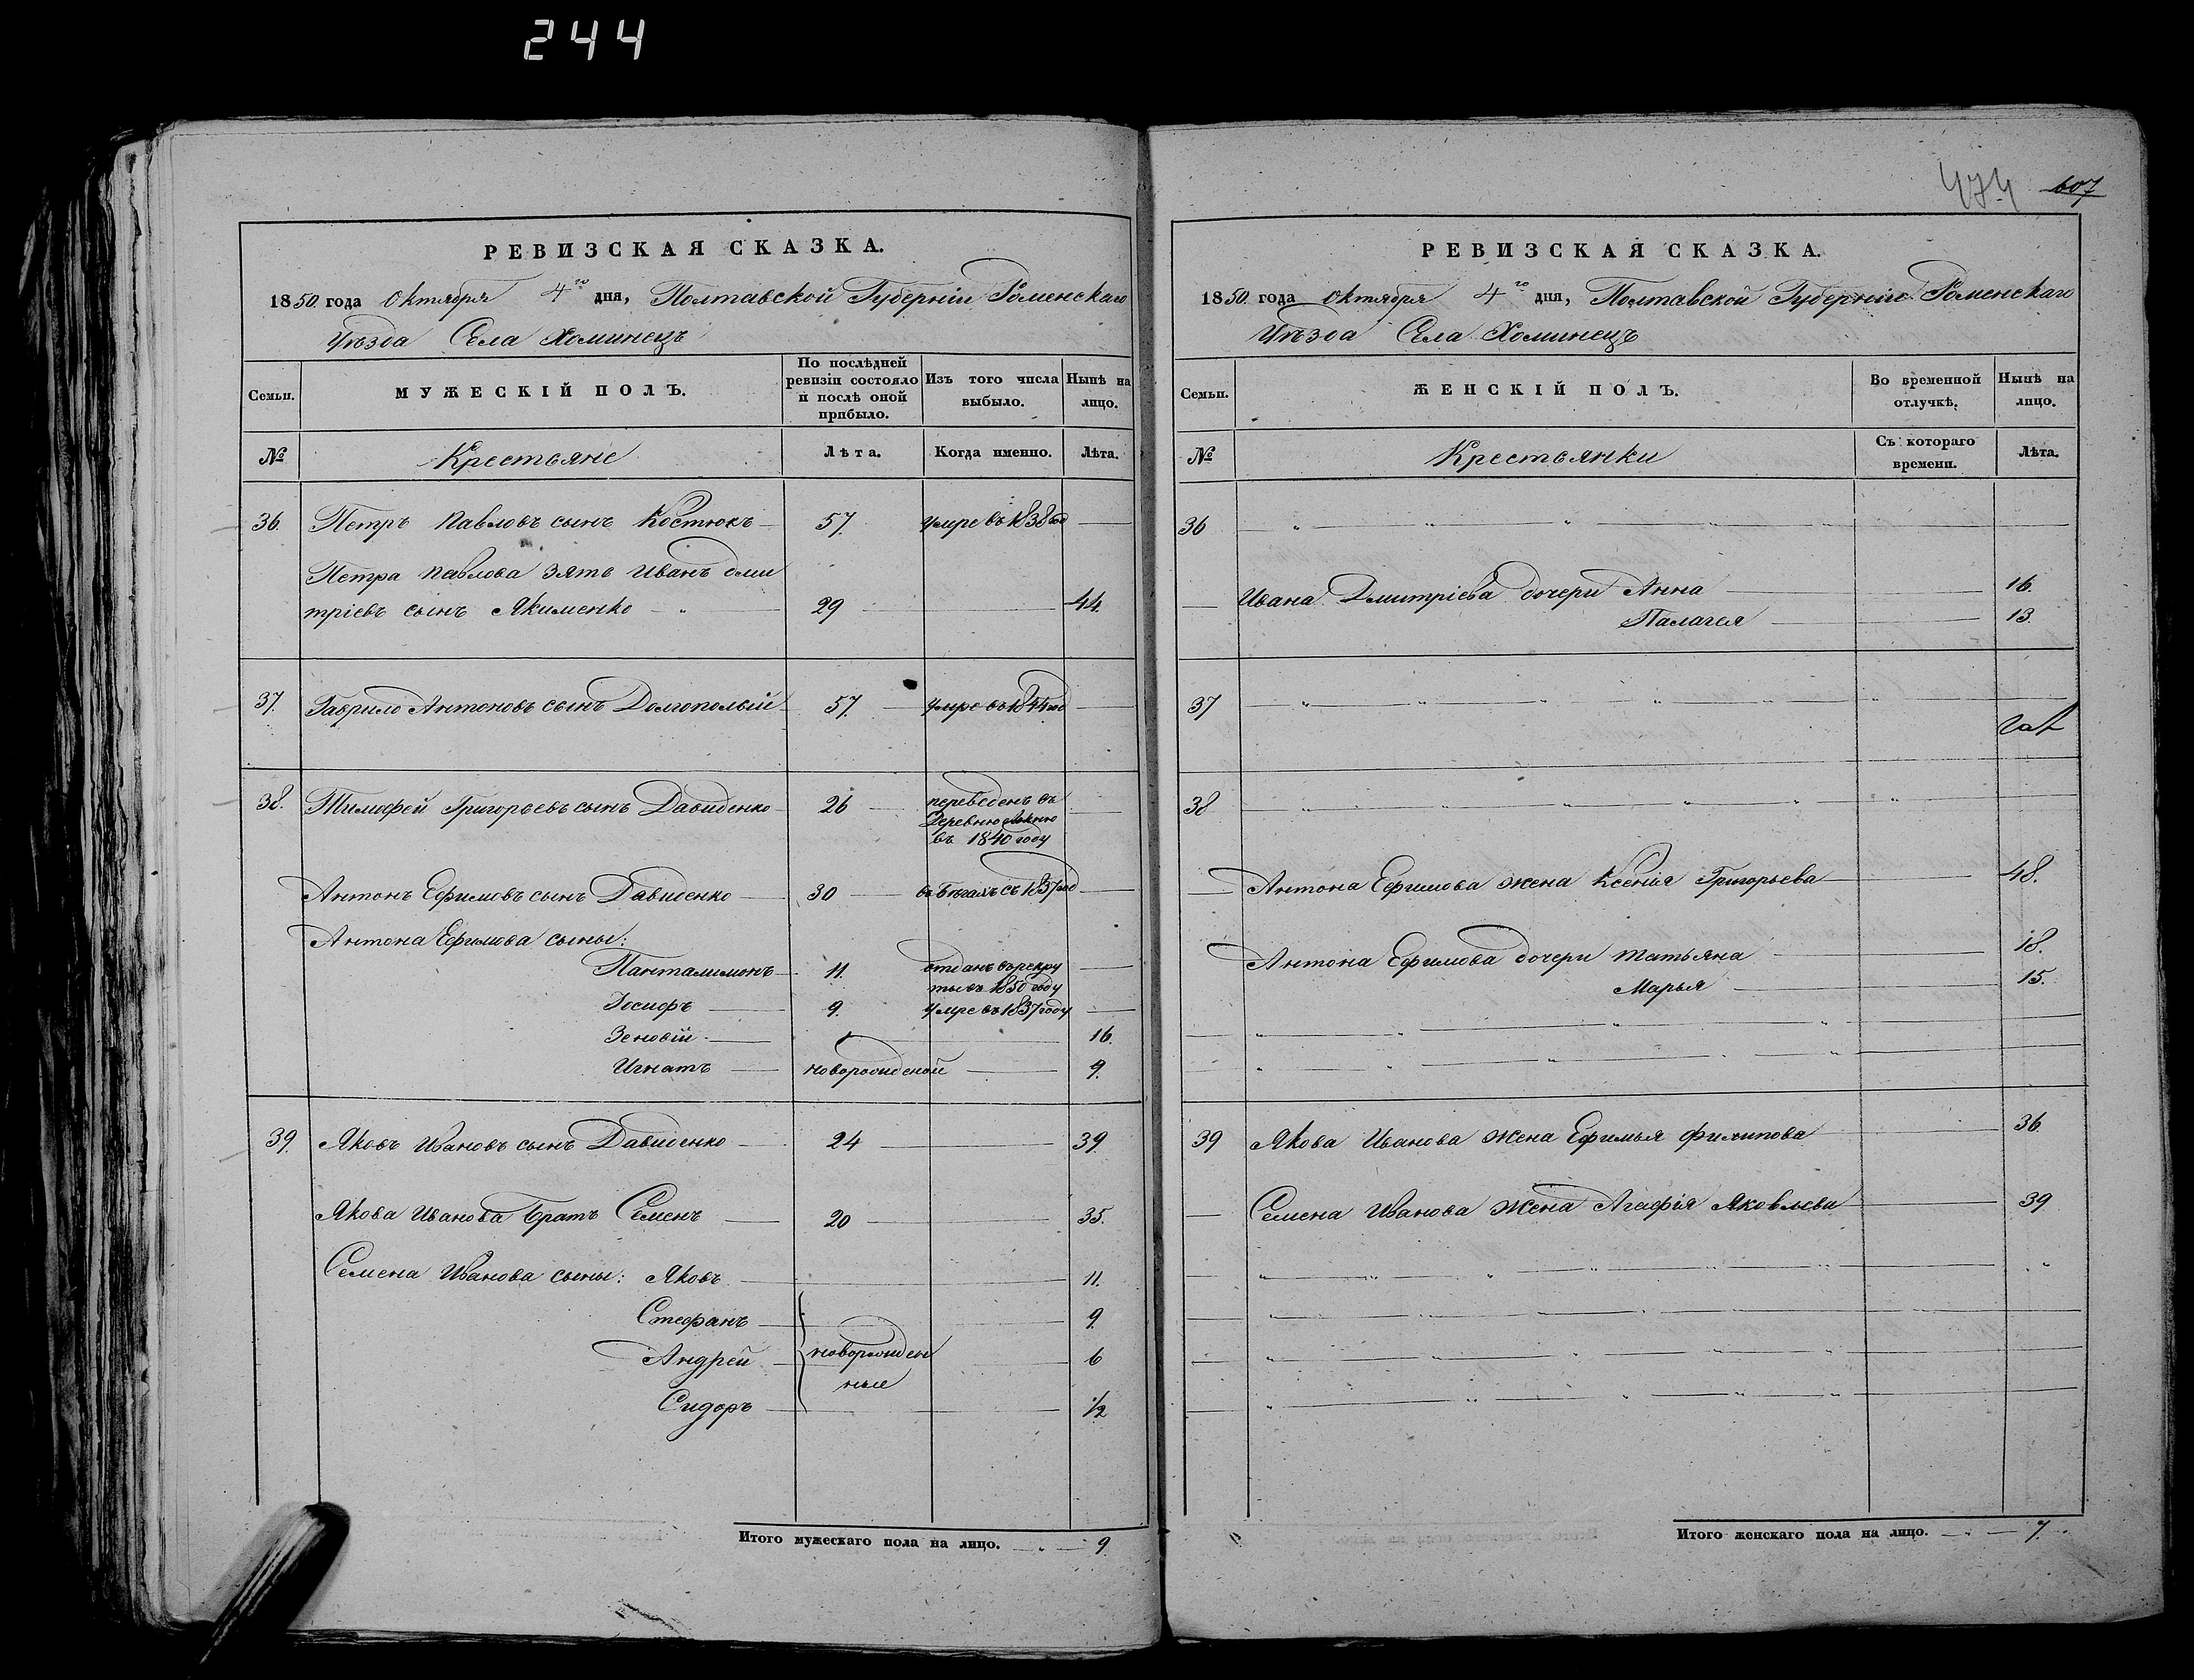 244
474 607
РЕВИЗСКАЯ СКАЗКА.
1850 года Октября 4го дня, Полтавской Губерніи Роменскаго
Уѣзда Села Хоминецъ
Семьи.
МУЖЕСКІЙ ПОЛЪ.
По послѣдней
ревизіи состояло
и послѣ оной
прибыло.
Изъ того числа
выбыло.
Нынѣ на
лицо.
№
Крестьяне
Лѣта.
Когда именно.
Лѣта.
36. Петръ Павловъ сынъ Костюкъ 57. умре въ 1838 год
Петра Павлова зять Иванъ Дми
тріевъ сынъ Якименко 29 44.
37. Гаврило Антоновъ сынъ 57. умре въ 1844 год
38. Тимофей Григорьевъ сынъ Давиденко 26 переведенъ въ
Деревню
въ 1840 году
Антонъ Ефимовъ сынъ Давиденко 30 въ бѣгахъ съ 1837 год
Антона Ефимова сыны:
Панталимонъ 11. отданъ въ рекру
ты въ 1850 году
Іосифъ 9. умре въ 1837 году
Зеновій 16.
Игнатъ новорожденой 9.
39. Яковъ Ивановъ сынъ Давиденко 24 39.
Якова Иванова братъ Семенъ 20 35.
Семена Иванова сыны: Яковъ 11.
Стефанъ 9.
Андрей новорожден 6
ные
Сидоръ 1/2
Итого мужескаго пола на лицо. 9.
РЕВИЗСКАЯ СКАЗКА.
1850 года Октября 4го дня, Полтавской Губерніи Роменскаго
Уѣзда Села Хоминецъ
Семьи.
ЖЕНСКІЙ ПОЛЪ.
Во временной
отлучкѣ.
Нынѣ на
лицо.
№
Крестьянки
Съ котораго
времени.
Лѣта.
36
Ивана Дмитріева дочери Анна 16.
Палагея 13.
37
38
Антона Ефимова жена Ксенія Григорьева 48.
Антона Ефимова дочери Татьяна 18.
Марья 15.
39 Якова Иванова жена Ефимья Филипова 36.
Семена Иванова жена Агафія Яковлева 39
Итого женскаго пола на лицо. 7.